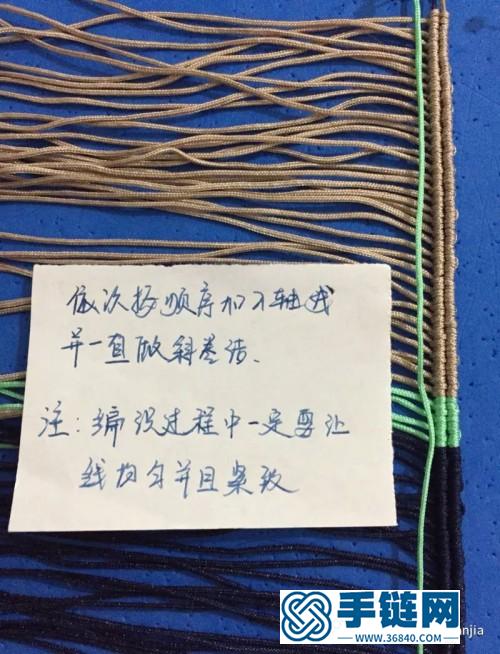 依次按顺序加入轴线
并一直做斜卷结.
注:编织过程中一定要让
线均匀并且紧致
手链网
www.36840.com
anjia